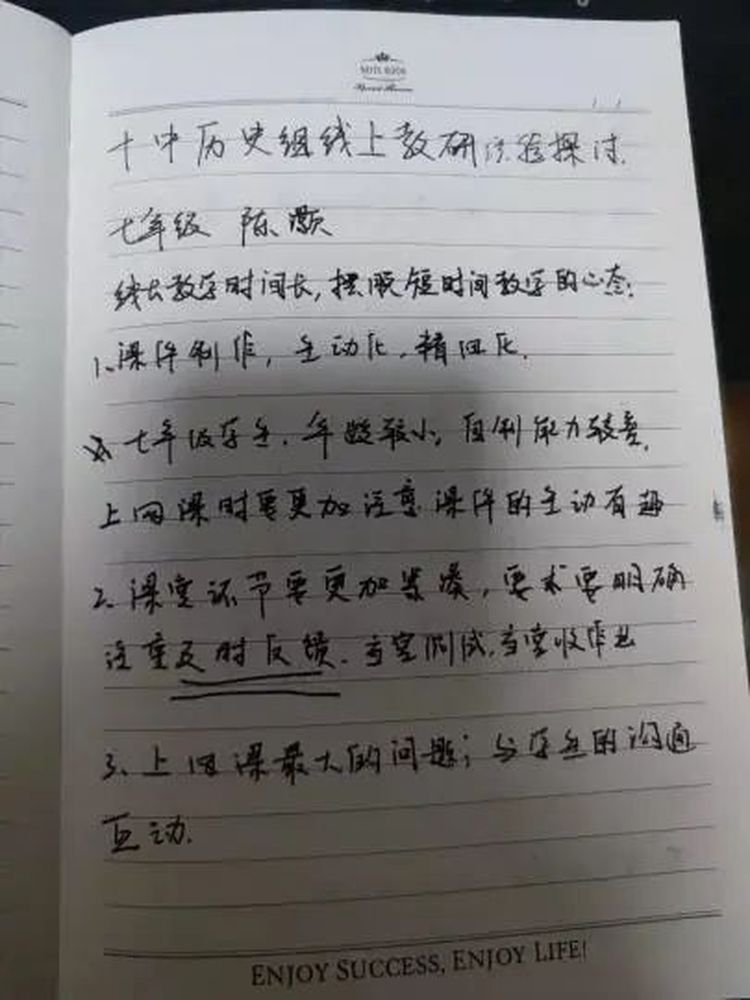 NOTE BOOK
十中历史组线上教研 探讨.
七年级 陈灏
线上教学时间长,摆脱短时间教学的心态:
1、课件制作,生动化,精细化.
七年级学生.年龄较小,自制能力较差.
上网课时要更加注意课件的生动有趣
2、课堂环节要更加紧凑,要求要明确
注重及时反馈.当堂测试,当堂收作业
3、上网课最大的问题;与学生的沟通
互动.
ENJOY SUCCESS, ENJOY LIFE!